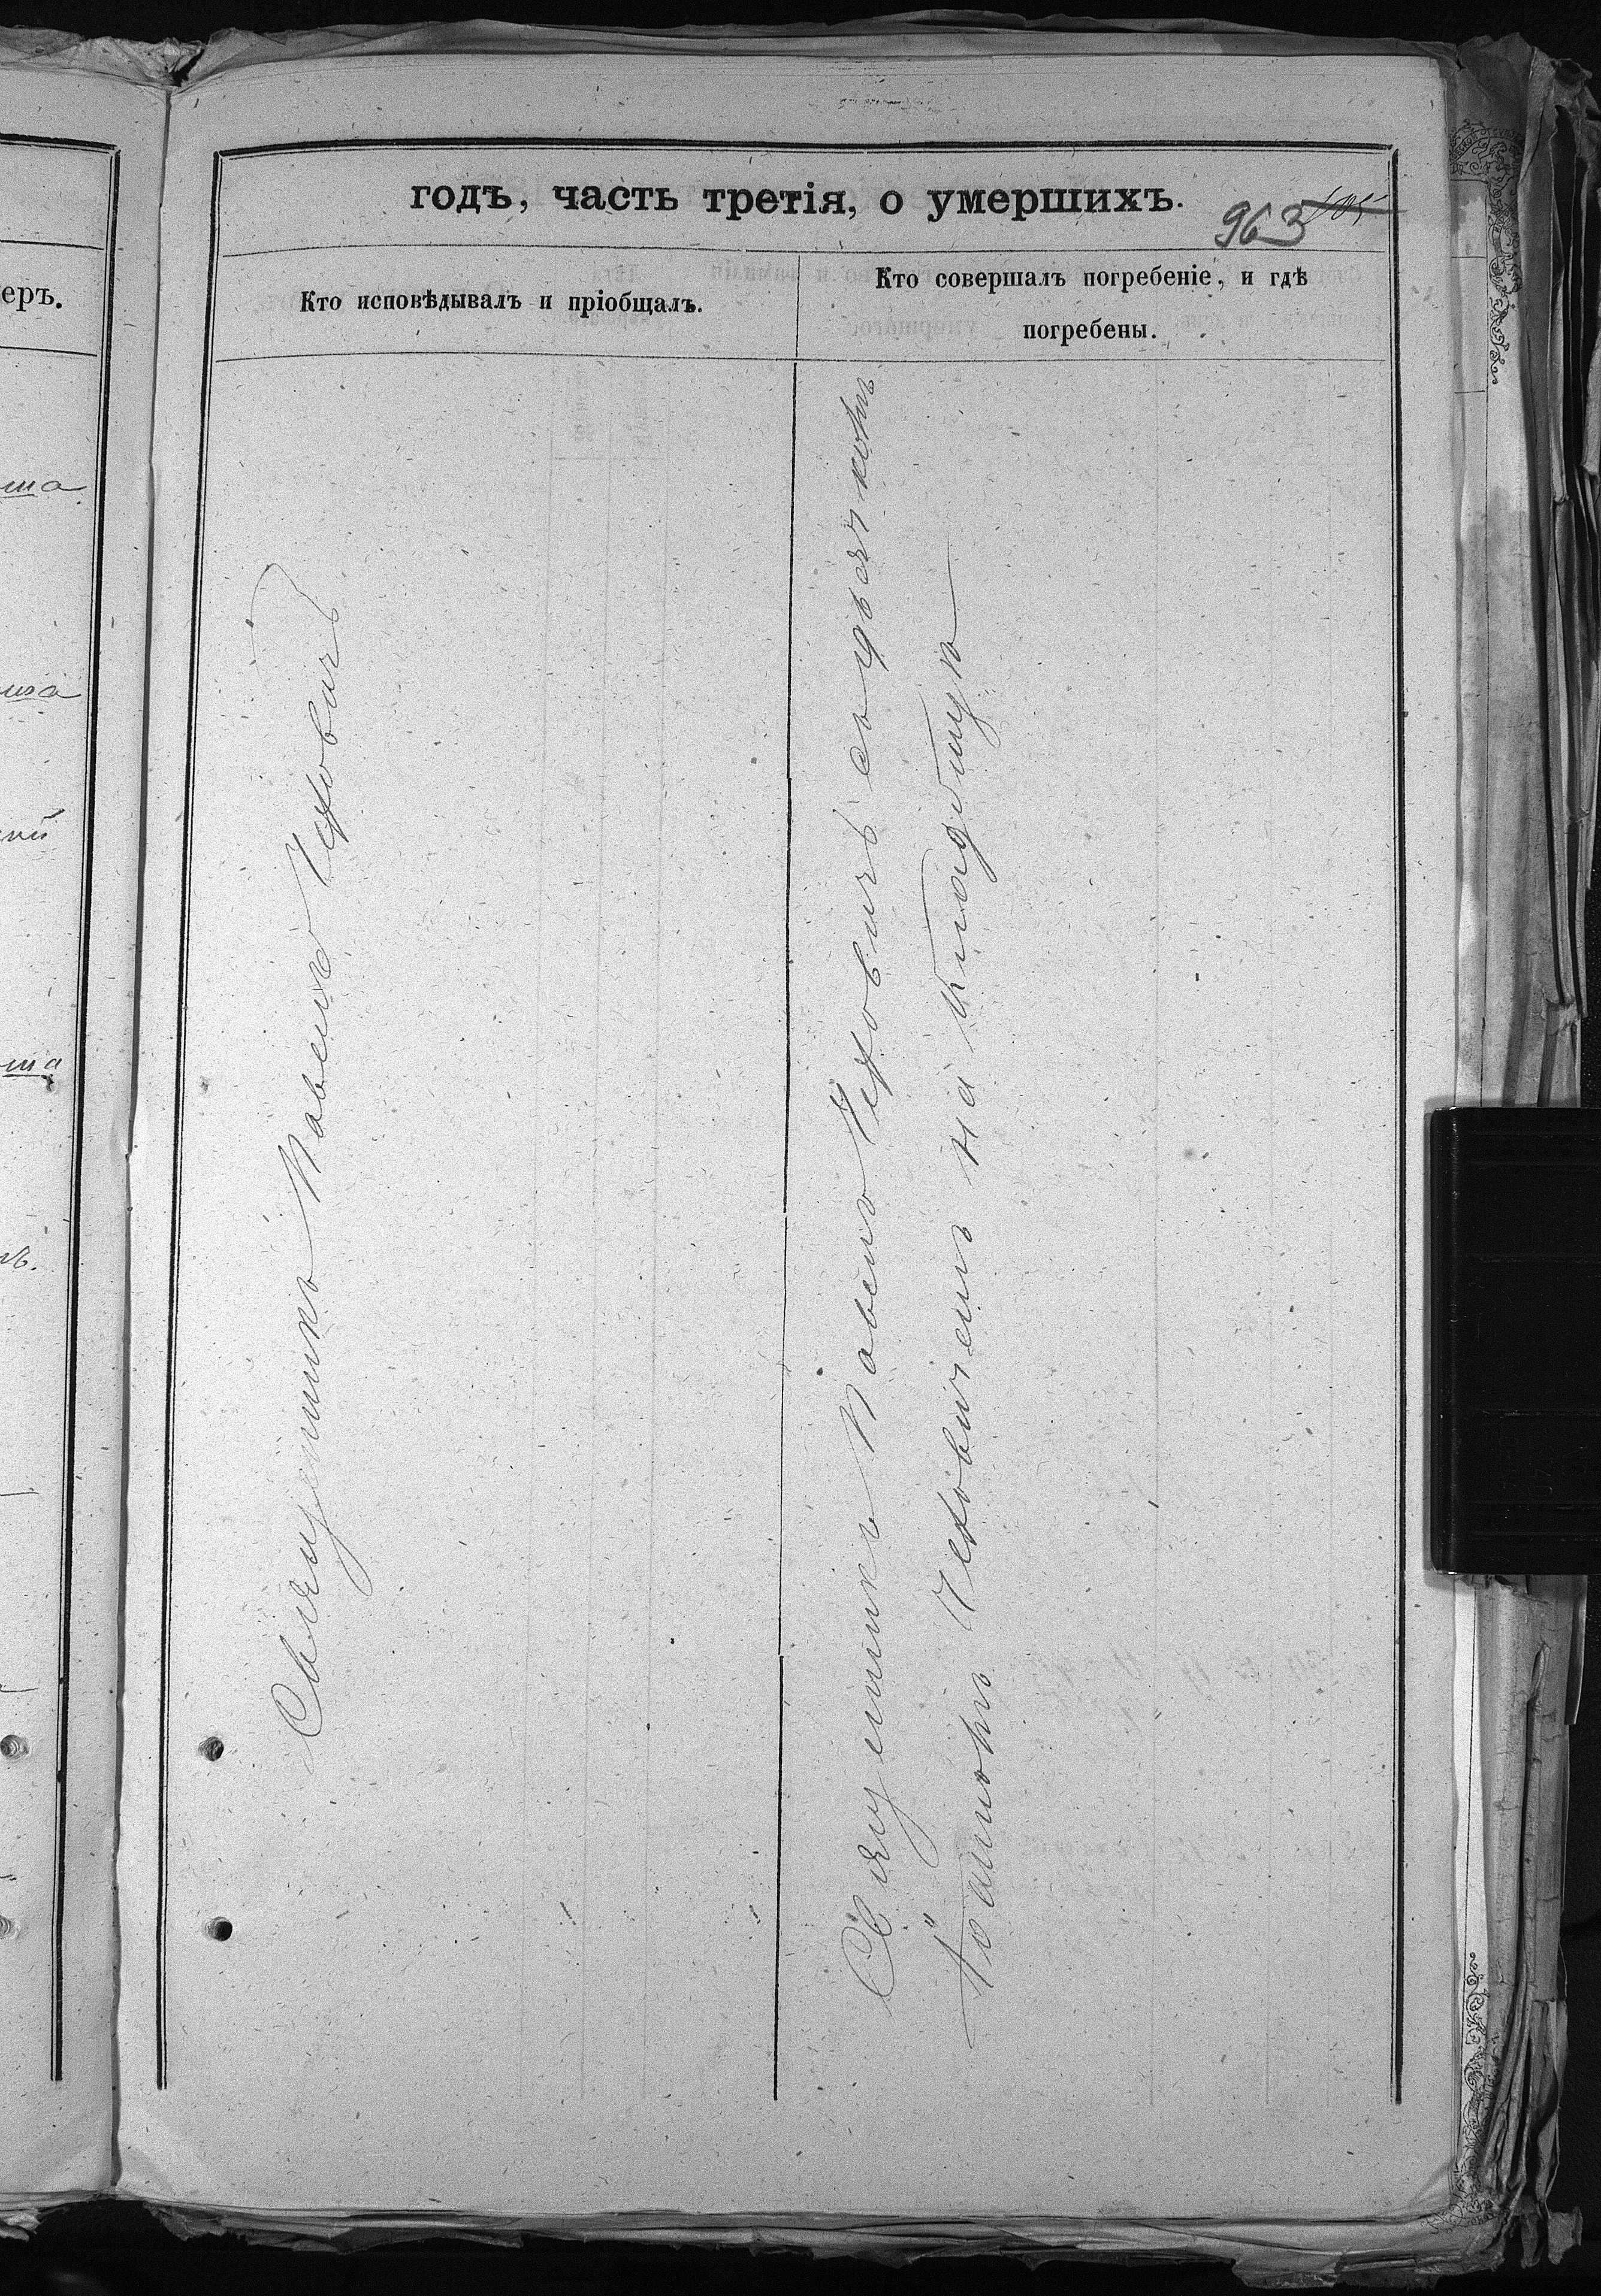 годъ, часть третія, о умершихъ.
963 105
еръ.
Кто исповѣдывалъ и пріобщалъ.
Кто совершалъ погребеніе, и гдѣ
погребены.
Священникъ Павелъ Чеховичъ
Священникъ Павелъ Чеховичъ съ дьячкомъ
Іоанномъ Чеховичемъ на кладбищѣ